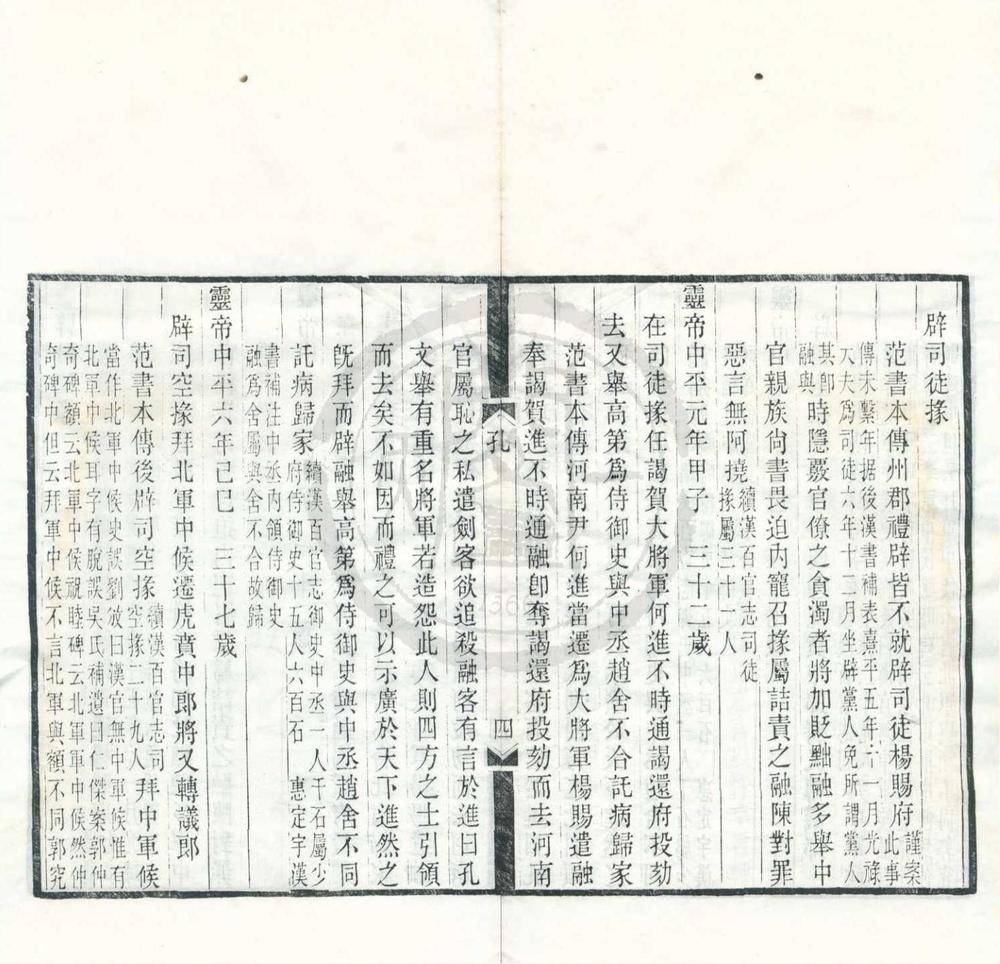 辟司徒掾
范書本傳州郡禮辟皆不就辟司徒楊賜府謹案
此事
傳未繫年据後漢書補表熹平五年十一月光祿
大夫爲司徒六年十二月坐辟黨人免所謂黨人
其卽
融與時隱覈官僚之貪濁者將加貶黜融多舉中
官親族尙書畏迫內寵召掾屬詰責之融陳對罪
惡言無阿撓續漢百官志司徒
掾屬三十一人
靈帝中平元年甲子 三十二歲
在司徒掾任謁賀大將軍何進不時通謁還府投劾
去又舉高第爲侍御史與中丞趙舍不合託病歸家
范書本傳河南尹何進當遷爲大將軍楊賜遣融
奉謁賀進不時通融卽奪謁還府投劾而去河南
孔
四
官屬恥之私遣劍客欲追殺融客有言於進曰孔
文舉有重名將軍若造怨此人則四方之士引領
而去矣不如因而禮之可以示廣於天下進然之
旣拜而辟融舉高第爲侍御史與中丞趙舍不同
託病歸家續漢百官志御史中丞一人千石屬少
府侍御史十五人六百石 惠定宇漢
書補注中丞內領侍御史
融爲舍屬與舍不合故歸
靈帝中平六年己巳 三十七歲
辟司空掾拜北軍中候遷虎賁中郎將又轉議郎
范書本傳後辟司空掾續漢百官志司
空掾二十九人拜中軍候
當作北軍中候史誤劉攽曰漢官無中軍候惟有
北軍中候耳字有脫誤吳氏補遺曰仁傑案郭仲
奇碑額云北軍中候祝睦碑云北軍軍中候然仲
奇碑中但云拜軍中候不言北軍與額不同郭究